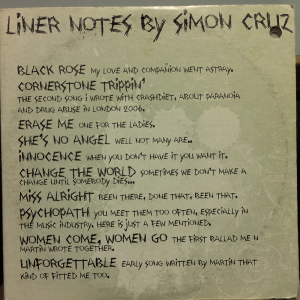 LINER NOTES BY SIMON CRUZ
BLACK ROSE MY LOVE AND COMPANION WENT ASTRAY.
CORNERSTONE TRIPPIN'
THE SECOND SONG I WROTE WITH CRASHDIET, ABOUT PARANOIA
AND DRUG ABUSE IN LONDON 2006.
ERASE ME ONE FOR THE LADIES.
SHE'S NO ANGEL WELL NOT MANY ARE..
INNOCENCE WHEN YOU DON'T HAVE IT YOU WANT IT.
CHANGE THE WORLD SOMETIMES WE DON'T MAKE A
CHANGE UNTIL SOMEBODY DIES...
MISS ALRIGHT BEEN THERE, DONE THAT, BEEN THAT.
PSYCHOPATH YOU MEET THEM TOO OFTEN, ESPECIALLY IN
THE MUSIC INDUSTRY. HERE IS JUST A FEW MENTIONED.
WOMEN COME, WOMEN GO THE FIRST BALLAD ME N
MARTIN WROTE TOGETHER.
UNFORGETTABLE EARLY SONG WRITTEN BY MARTIN THAT
KIND OF FITTED ME TOO.